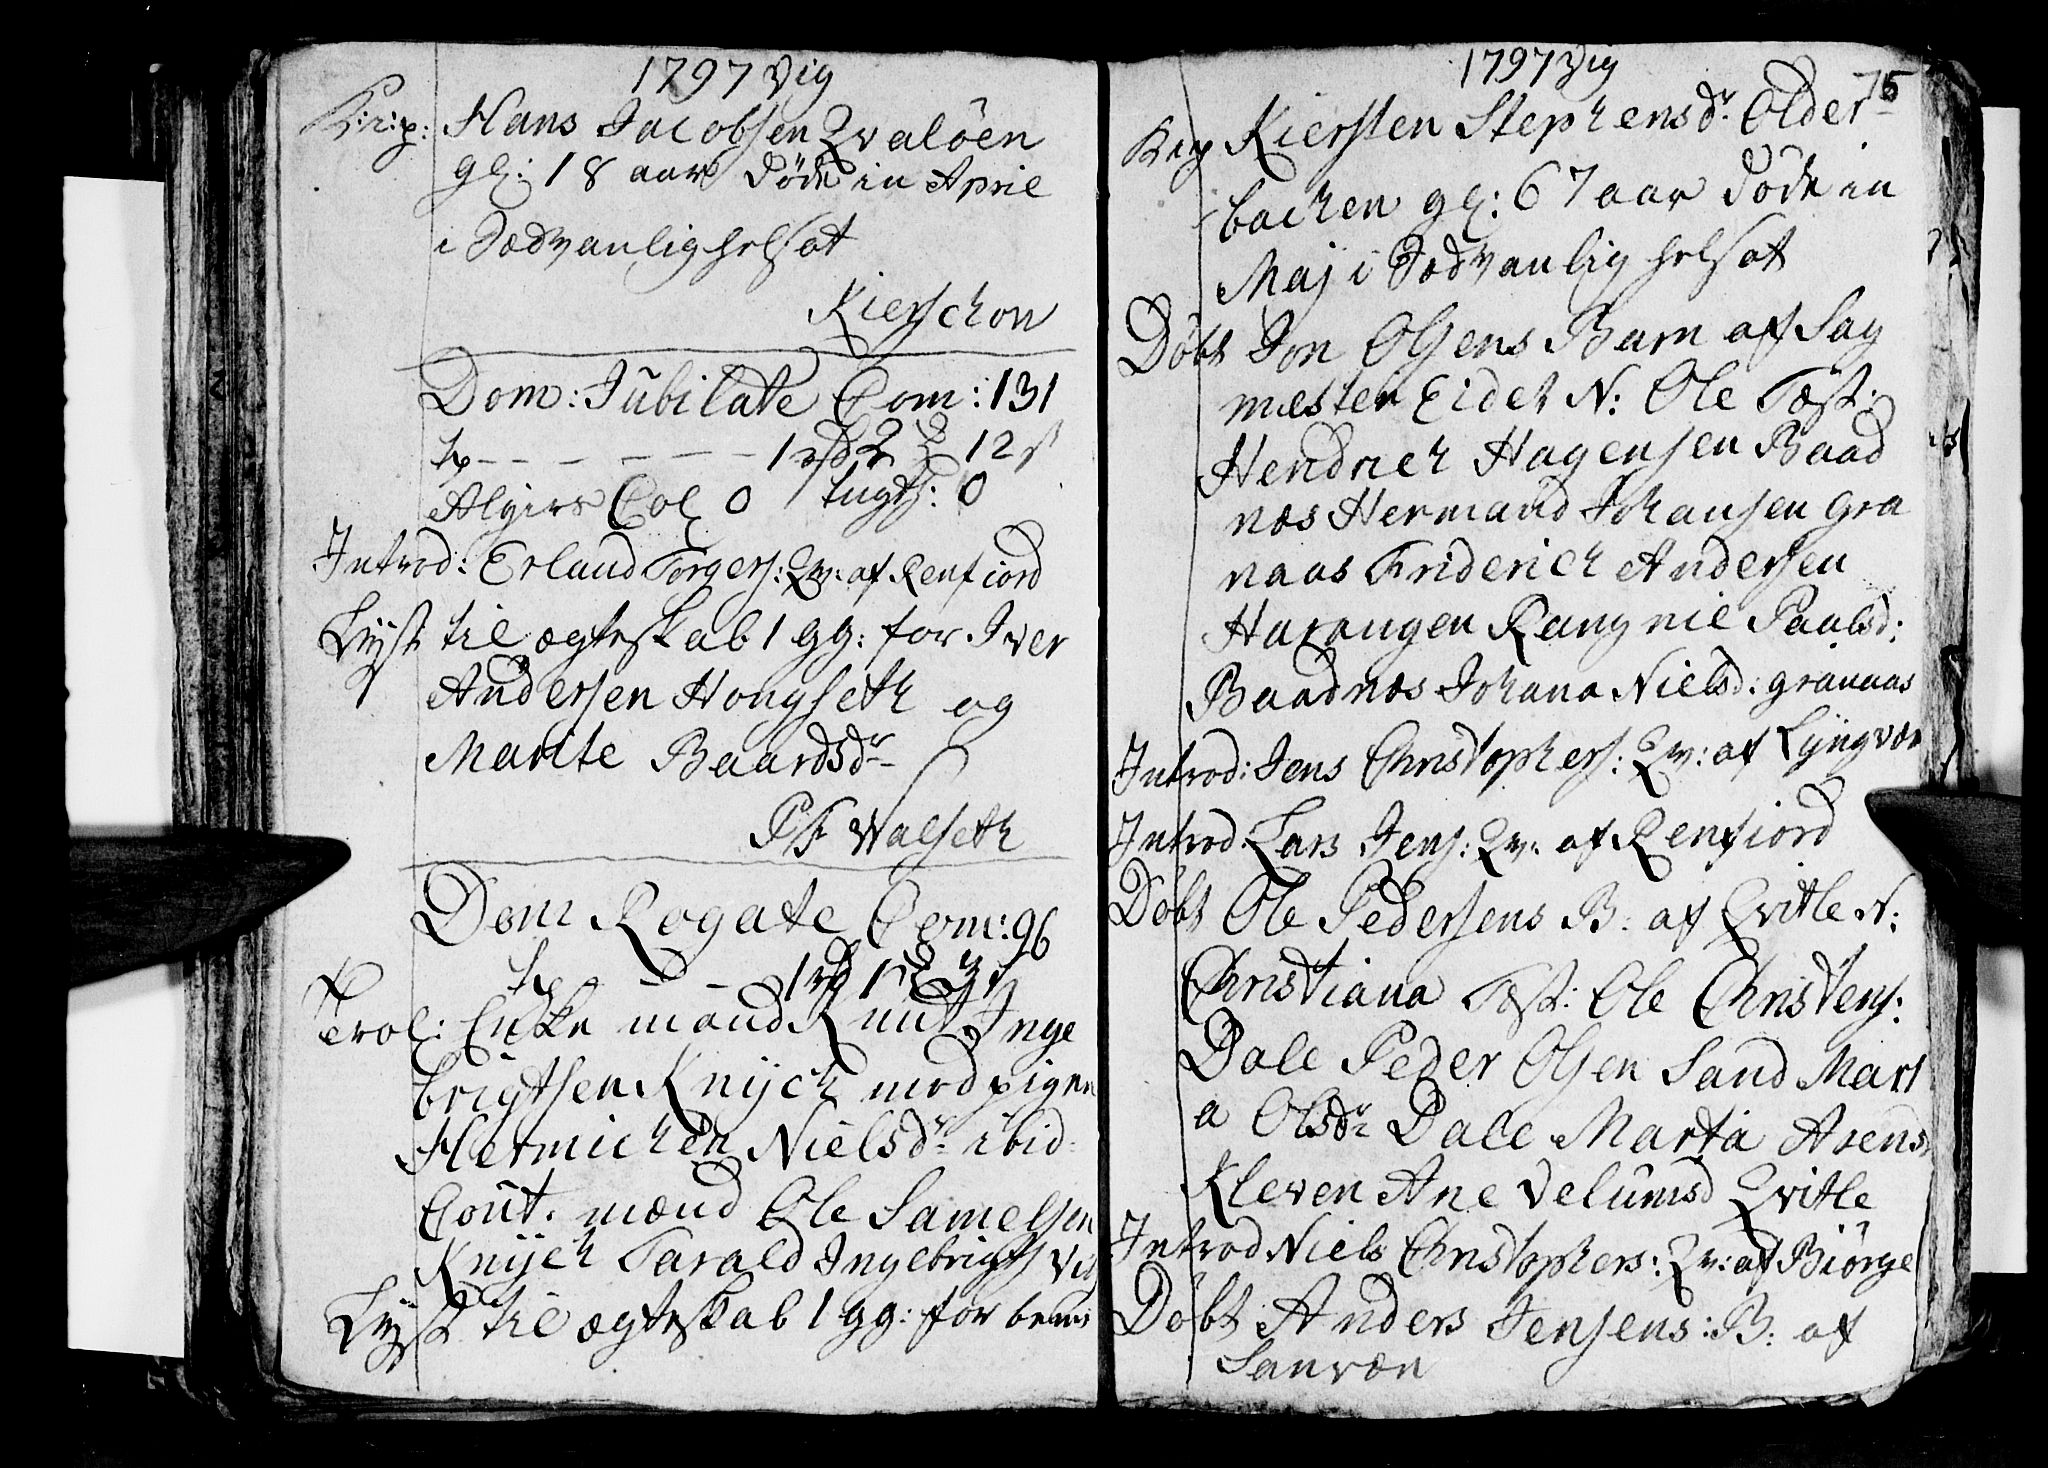 1797 Vig
K:i:p: Hans Jacobsen Qvalöen
gl: 18 aar döde in April
i Sædvanlig helsot
Kierschow
Dom: Jubilate Com: 131
1 rd 2 12 s
Algiers Col 0 tugth: 0
Introd: Erland Torgers: Qv: af Renfiord
Lyst til ægteskab 1 gg: for Iver
Andersen Hongseth og
Marite Baardsdr
PF Walseth
Dom Rogate Com: 96
1 rd 1
Trol: Enke mand Knut Inge
brigtsen Knÿch med pigen
Hermichen Nielsdr ibid
Cout. mænd Ole Samelsen
Knÿch Tarald Ingebrigts Vig
Lyst til ægteskab 1 gg: for bem
1797 Vig
75
Kip Kiersten Stephensdr Older-
bachen gl: 67 aar döde in
Maj i Sædvanlig helsot
Döbt Jon Olsens Barn af Sag
mester Eidet N: Ole Test:
Hendrich Hagensen Baad
næs Hermand Johansen Gra
naas Friderich Andersen
Harangen Rangnil Paalsd:
Baadnæs Johana Nielsd: granaas
Introd: Jens Christophers: Qv: af Lÿngvær
Introd Lars Jens: Qv: af Renfiord
Döbt Ole Pedersens B: af Qvitle N:
Christiana Test: Ole Christens:
Dale Peder Olsen Sand Mart
a Olsdr Dale Marta Arens
Kleven Ane Velumsd Qvitle
Introd Niels Christophers: Qv: af Biörge
Döbt Anders Jensens: B: af
Sanvæn